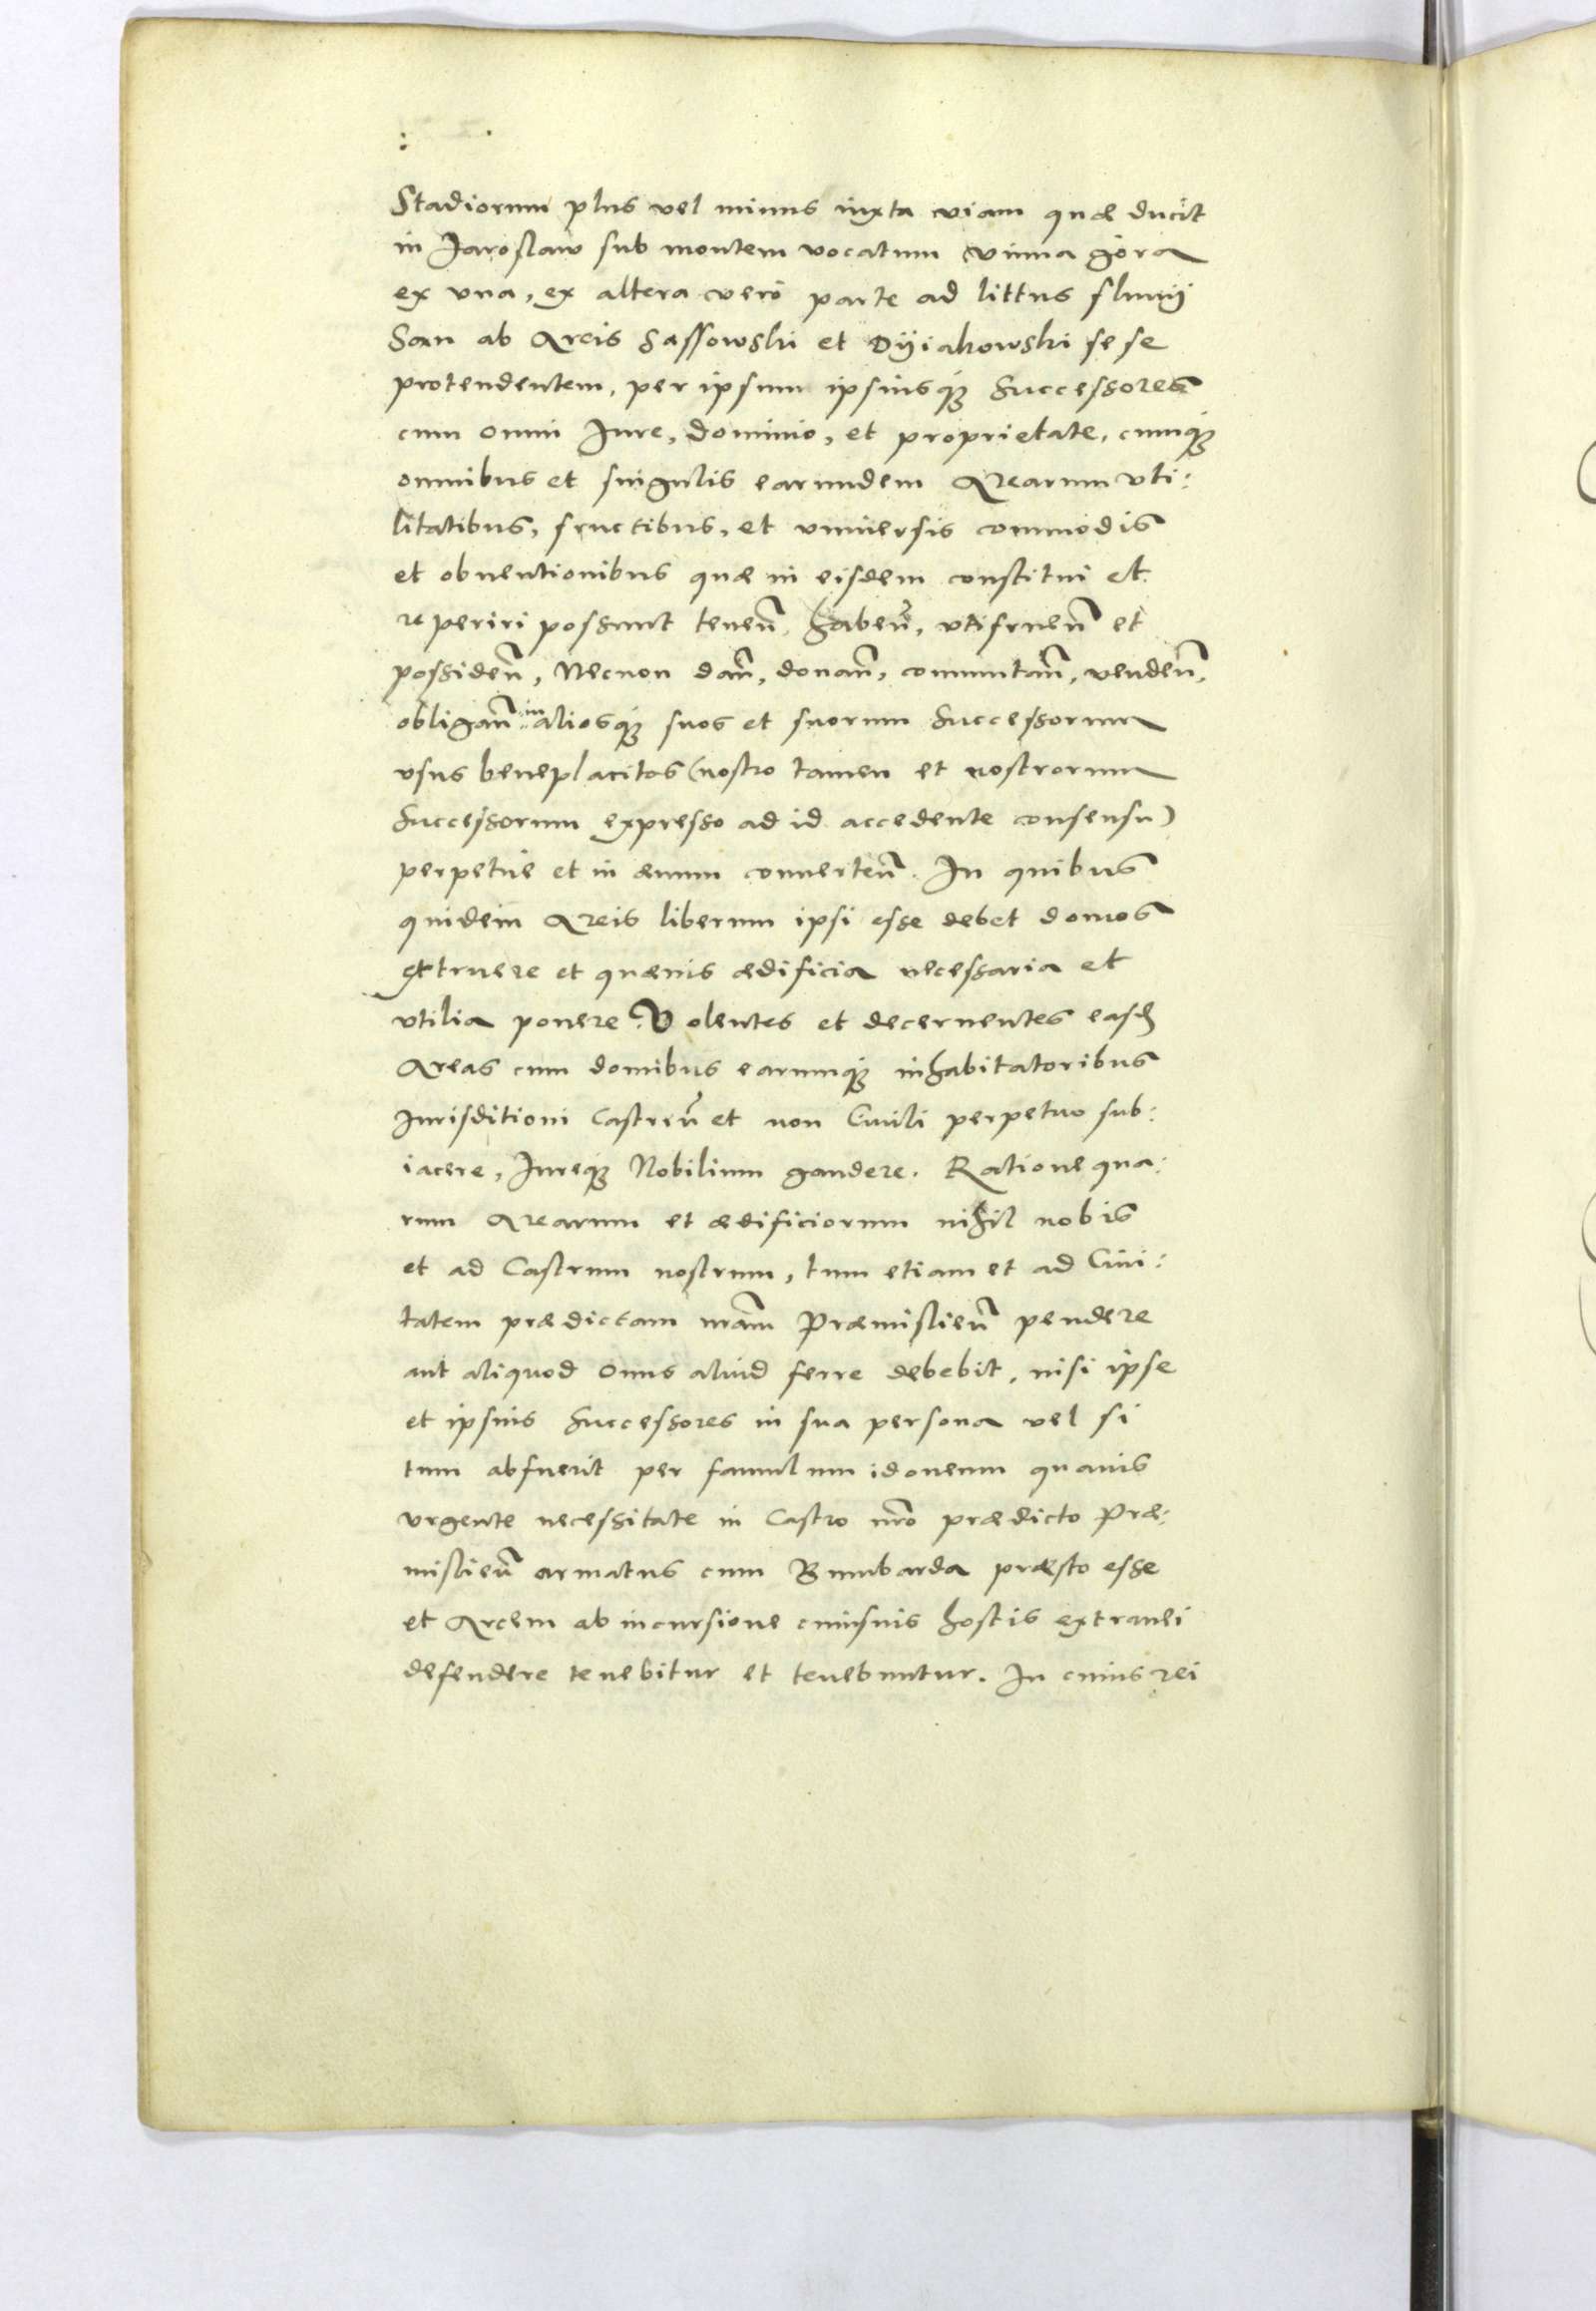 Stadiorum plus vel minus iuxta viam quæ ducit
in Jaroslaw sub montem vocatum vinna gora
ex vna, ex altera vero parte ad littus fluuij
San ab Areis Sassowski et Dyiakowski sese
protendentem, per ipsum ipsiusq3 Successores
cum omni Jure, dominio, et proprietate, cumq3
omnibus et singulis earundem Arearum vti:
litatibus, fructibus, et vniuersis commodis
et obuentionibus quæ in eisdem constitui et
reperiri possunt teneñ, habeñ, vtifrueñ et
possideñ, Necnon dañ, donañ, commutañ, vendeñ,
obligañ in aliosq3 suos et suorum Successorum
vsus beneplacitos (nostro tamen et nostrorum
Successorum expresso ad id accedente consensu)
perpetue et in æuum conuerteñ. In quibus
quidem Areis liberum ipsi esse debet domos
extruere et quæuis ædificia necessaria et
vtilia ponere. Volentes et decernentes easd̃
Areas cum domibus earumq3 inhabitatoribus
Jurisditioni Castreñ et non Ciuili perpetuo sub:
iacere, Jureq3 Nobilium gaudere. Ratione qua:
rum Arearum et ædificiorum nihil nobis
et ad Castrum nostrum, tum etiam et ad Ciui:
tatem prædictam nr̃am Præmislieñ pendere
aut aliquod onus aliud ferre debebit, nisi ipse
et ipsius Successores in sua persona vel si
tum abfuerit per famulum idoneum quauis
vrgente necessitate in Castro nr̃o prædicto Præ:
mislieñ armatus cum Bumbarda præsto esse
et Arcem ab incursione cuiusuis hostis extranei
defendere tenebitur et tenebuntur. In cuius rei